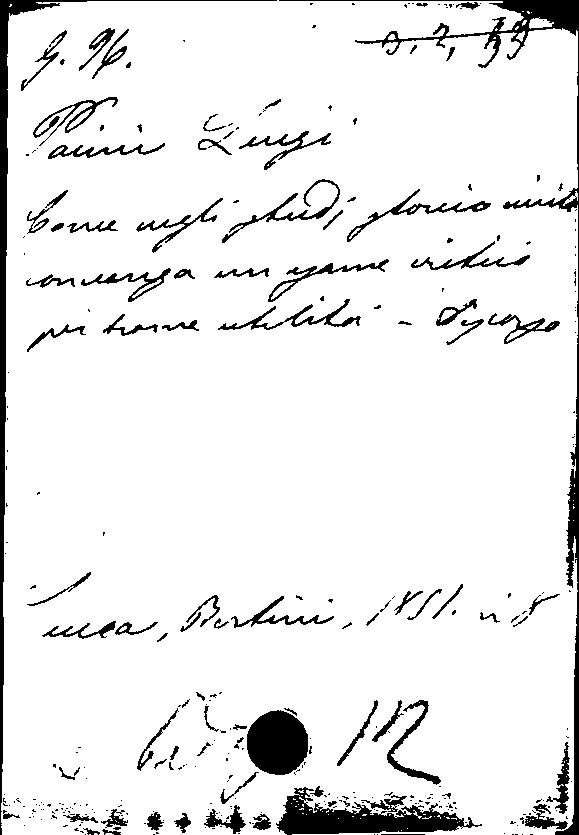 G. N.
3, 2, 33
Pacini Luigi
Come negli studj storico
convenga un esame critico
per trarne utilità - Discorso
Lucca, Bertini, 1851. in 8